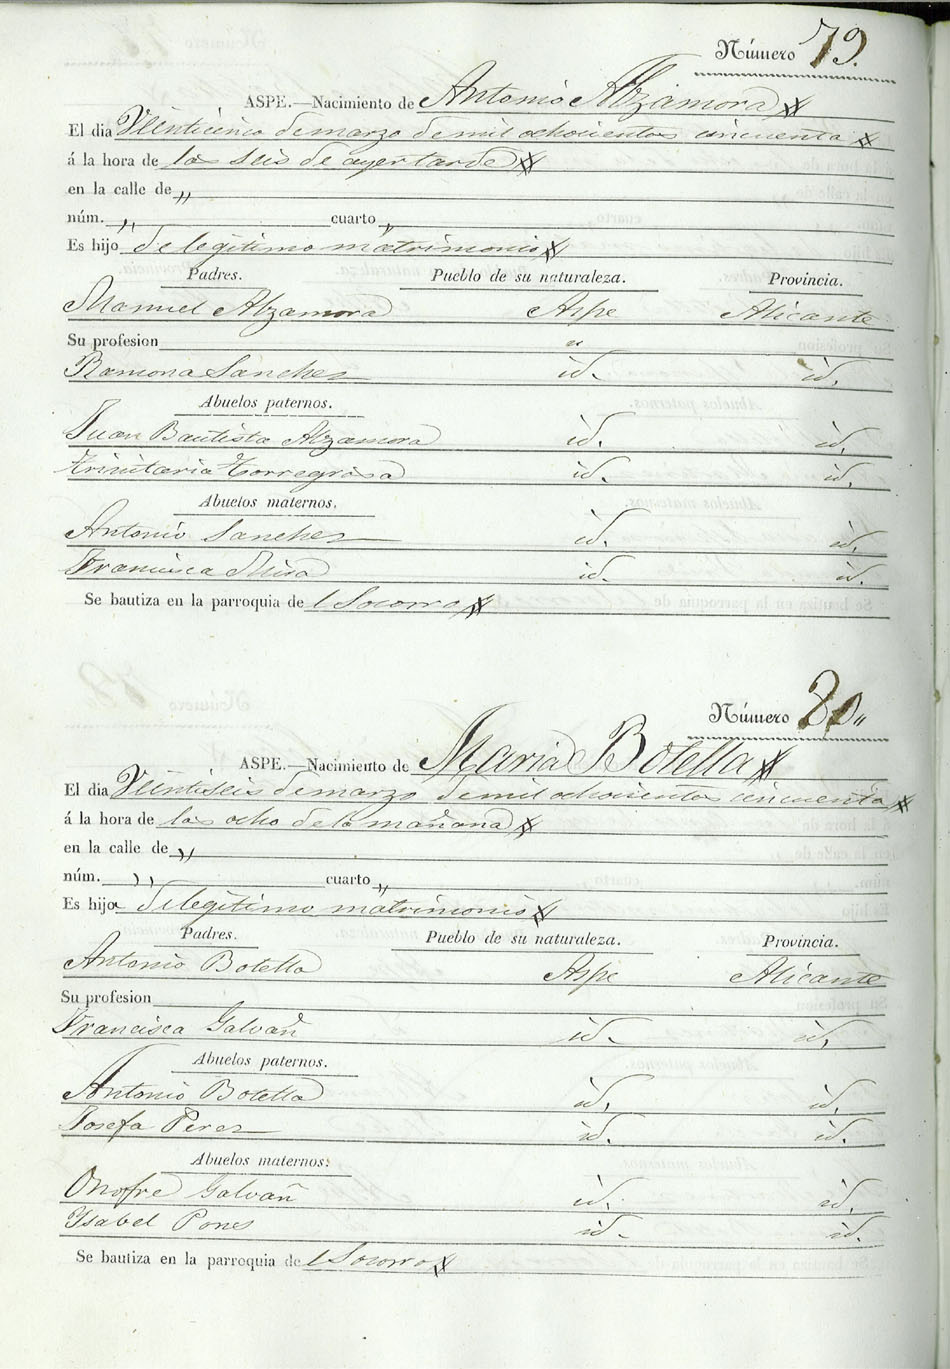 Número 79.
ASPE.—Nacimiento de Antonio Alzamora
El dia Veinticinco de marzo de mil ochocientos cincuenta
á la hora de las seis de ayer tarde
en la calle de „
núm. „ cuarto „
Es hijo de legitimo matrimonio
Padres. Pueblo de su naturaleza. Provincia.
Manuel Alzamora Aspe Alicante
Su profesion „
Ramona Sanchez id. id.
Abuelos paternos.
Juan Bautista Alzamora id. id.
Trinitaria Torregrosa id. id.
Abuelos maternos.
Antonio Sanchez id. id.
Francisca id. id.
Se bautiza en la parroquia del Socorro
Número 80„
ASPE.—Nacimiento de Maria Botella
El dia Veintiseis de marzo de mil ochocientos cincuenta
á la hora de las ocho de la mañana
en la calle de „
núm. „ cuarto „
Es hija de legitimo matrimonio
Padres. Pueblo de su naturaleza. Provincia.
Antonio Botella Aspe Alicante
Su profesion
Francisca Galvañ id. id.
Abuelos paternos.
Antonio Botella id. id.
Josefa Perez id. id.
Abuelos maternos:
Onofre Galvañ id. id.
Ysabel Pones id. id.
Se bautiza en la parroquia del Socorro